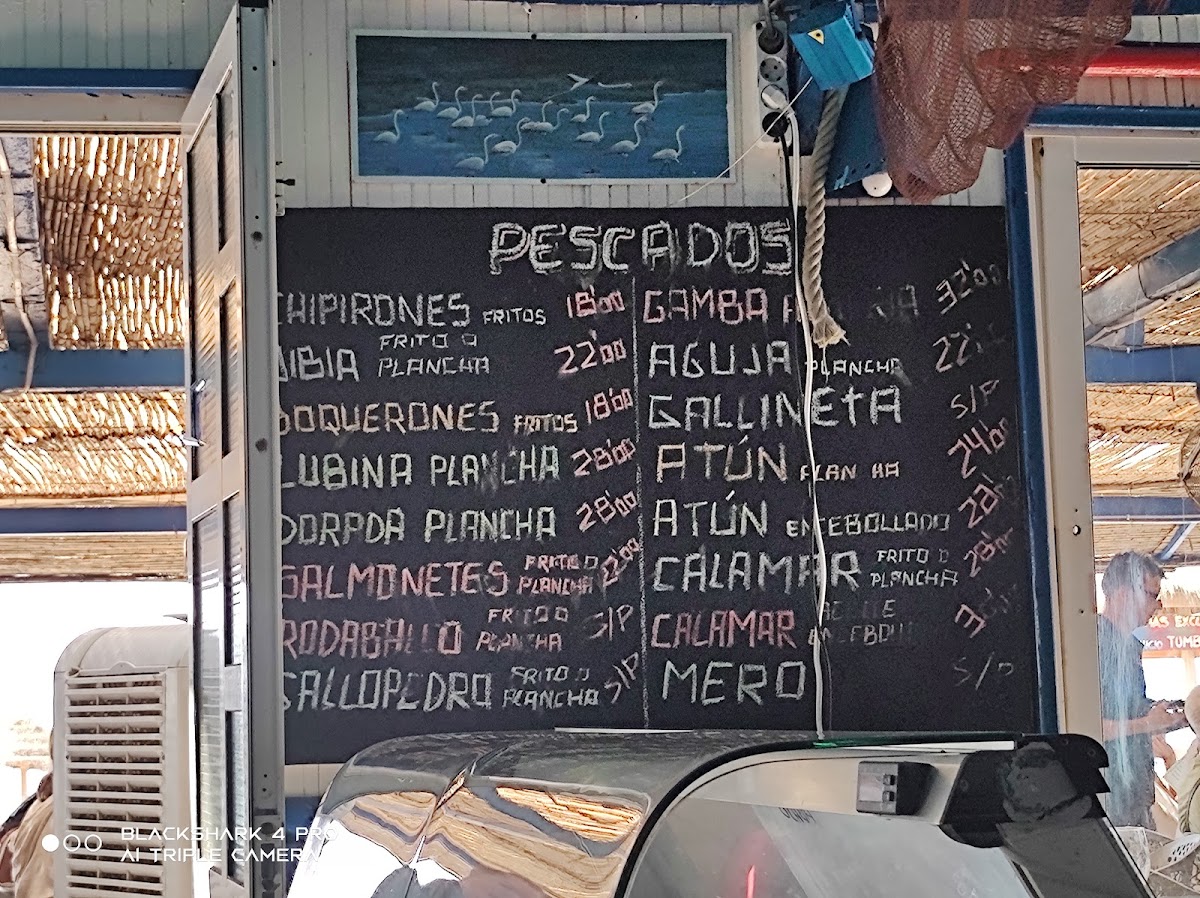 PESCADOS
CHIPIRONES FRITOS 18'00
JIBIA FRITO O PLANCHA 22'00
BOQUERONES FRITOS 18'00
LUBINA PLANCHA 28'00
DORADA PLANCHA 28'00
SALMONETES FRITO O PLANCHA
RODABALLO FRITO O PLANCHA S/P
GALLOPEDRO FRITO O PLANCHA S/P
GAMBA 32'00
AGUJA PLANCHA
GALLINETA S/P
ATÚN PLANCHA 24'00
ATÚN ENCEBOLLADO
CALAMAR FRITO O PLANCHA
CALAMAR
MERO S/P
BLACKSHARK 4 PRO
AI TRIPLE CAMERA